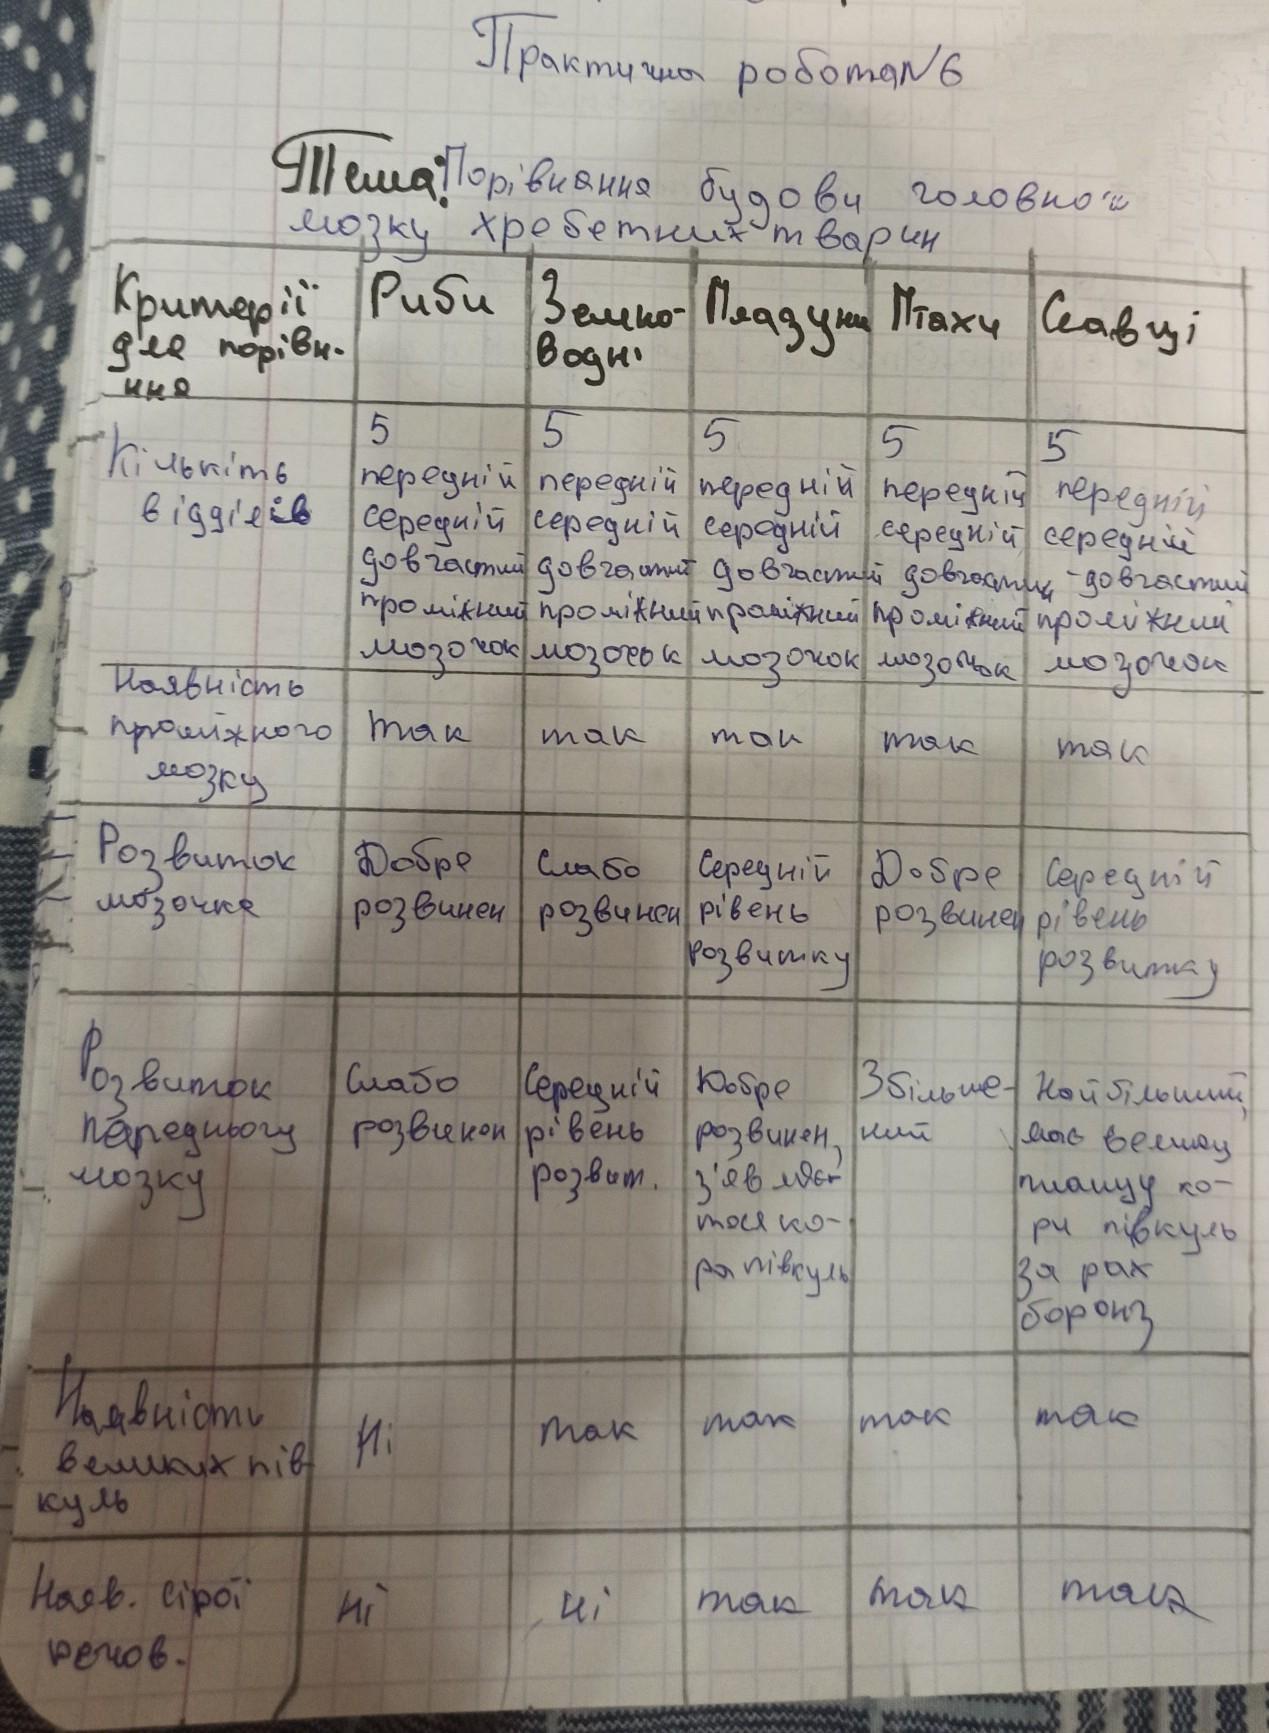 Практична робота №6
Тема: Порівняння будови головної
мозку хребетних тварин
Критерії
для порівн.
ння
Риби
Земно-
водні
Плазуни
Птахи
Ссавці
Кількіть
відділів
5
передній
середній
довгастий
проміжний
мозочок
5
передній
середній
довгастий
проміжний
мозочок
5
передній
середній
довгастий
проміжний
мозочок
5
передній
середній
довгастий
проміжний
мозочок
5
передній
середній
довгастий
проміжний
мозочок
Наявність
проміжного
мозку
так
так
так
так
так
Розвиток
мозочка
Добре
розвинен
Слабо
розвинен
Середній
рівень
розвитку
Добре
розвинен
Середній
рівень
розвитку
Розвиток
переднього
мозку
Слабо
розвинен
Середній
рівень
розвит.
Добре
розвинен,
з'являєт
ться ко-
ра півкуль
Збільше-
ний
Найбільший,
має велику
площу ко-
ри півкуль
за рах
борозн
Наявність
великих пів
куль
Ні
так
так
так
так
Наяв. сірої
речов.
ні
ні
так
так
так